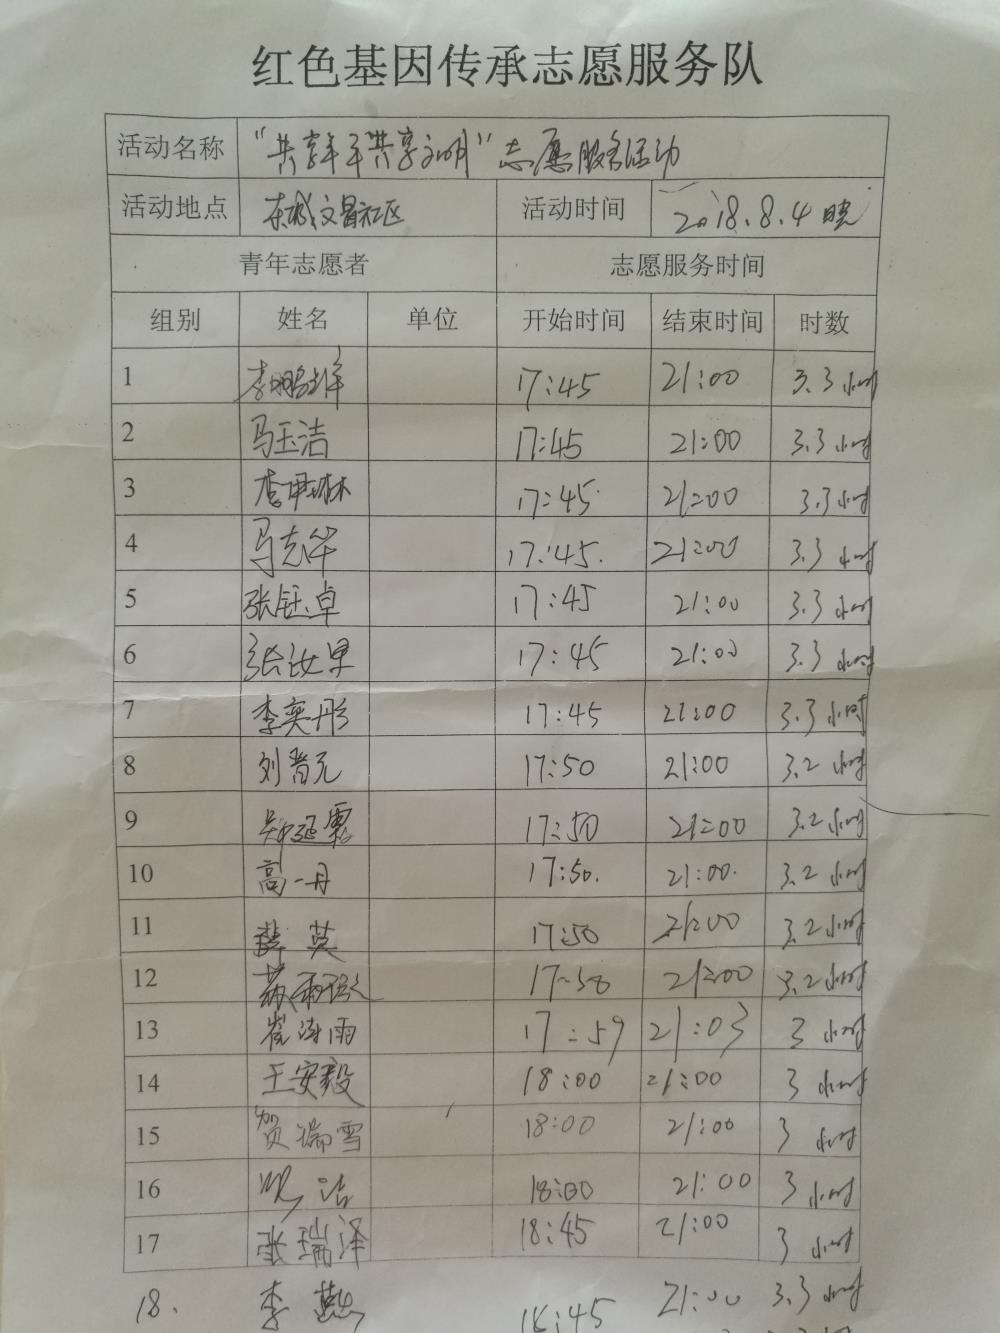 红色基因传承志愿服务队
活动名称 "共享单车 共享文明"志愿服务活动
活动地点 东城文昌社区 活动时间 2018.8.4 晚
青年志愿者 志愿服务时间
组别 姓名 单位 开始时间 结束时间 时数
1 17:45 21:00 3.3小时
2 马玉洁 17:45 21:00 3.3小时
3 李尹琳 17:45 21:00 3.3小时
4 马克华 17:45 21:00 3.3小时
5 张钰卓 17:45 21:00 3.3小时
6 张汝果 17:45 21:00 3.3小时
7 李奕彤 17:45 21:00 3.3小时
8 刘晋元 17:50 21:00 3.2小时
9 17:50 21:00 3.2小时
10 高一丹 17:50 21:00 3.2小时
11 薛英 17:50 21:00 3.2小时
12 17:50 21:00 3.2小时
13 崔涛雨 17:59 21:03 3小时
14 王安毅 18:00 21:00 3小时
15 贺瑞雪 18:00 21:00 3小时
16 洁 18:00 21:00 3小时
17 张瑞泽 18:45 21:00 3小时
18. 李 21:00 3.3小时